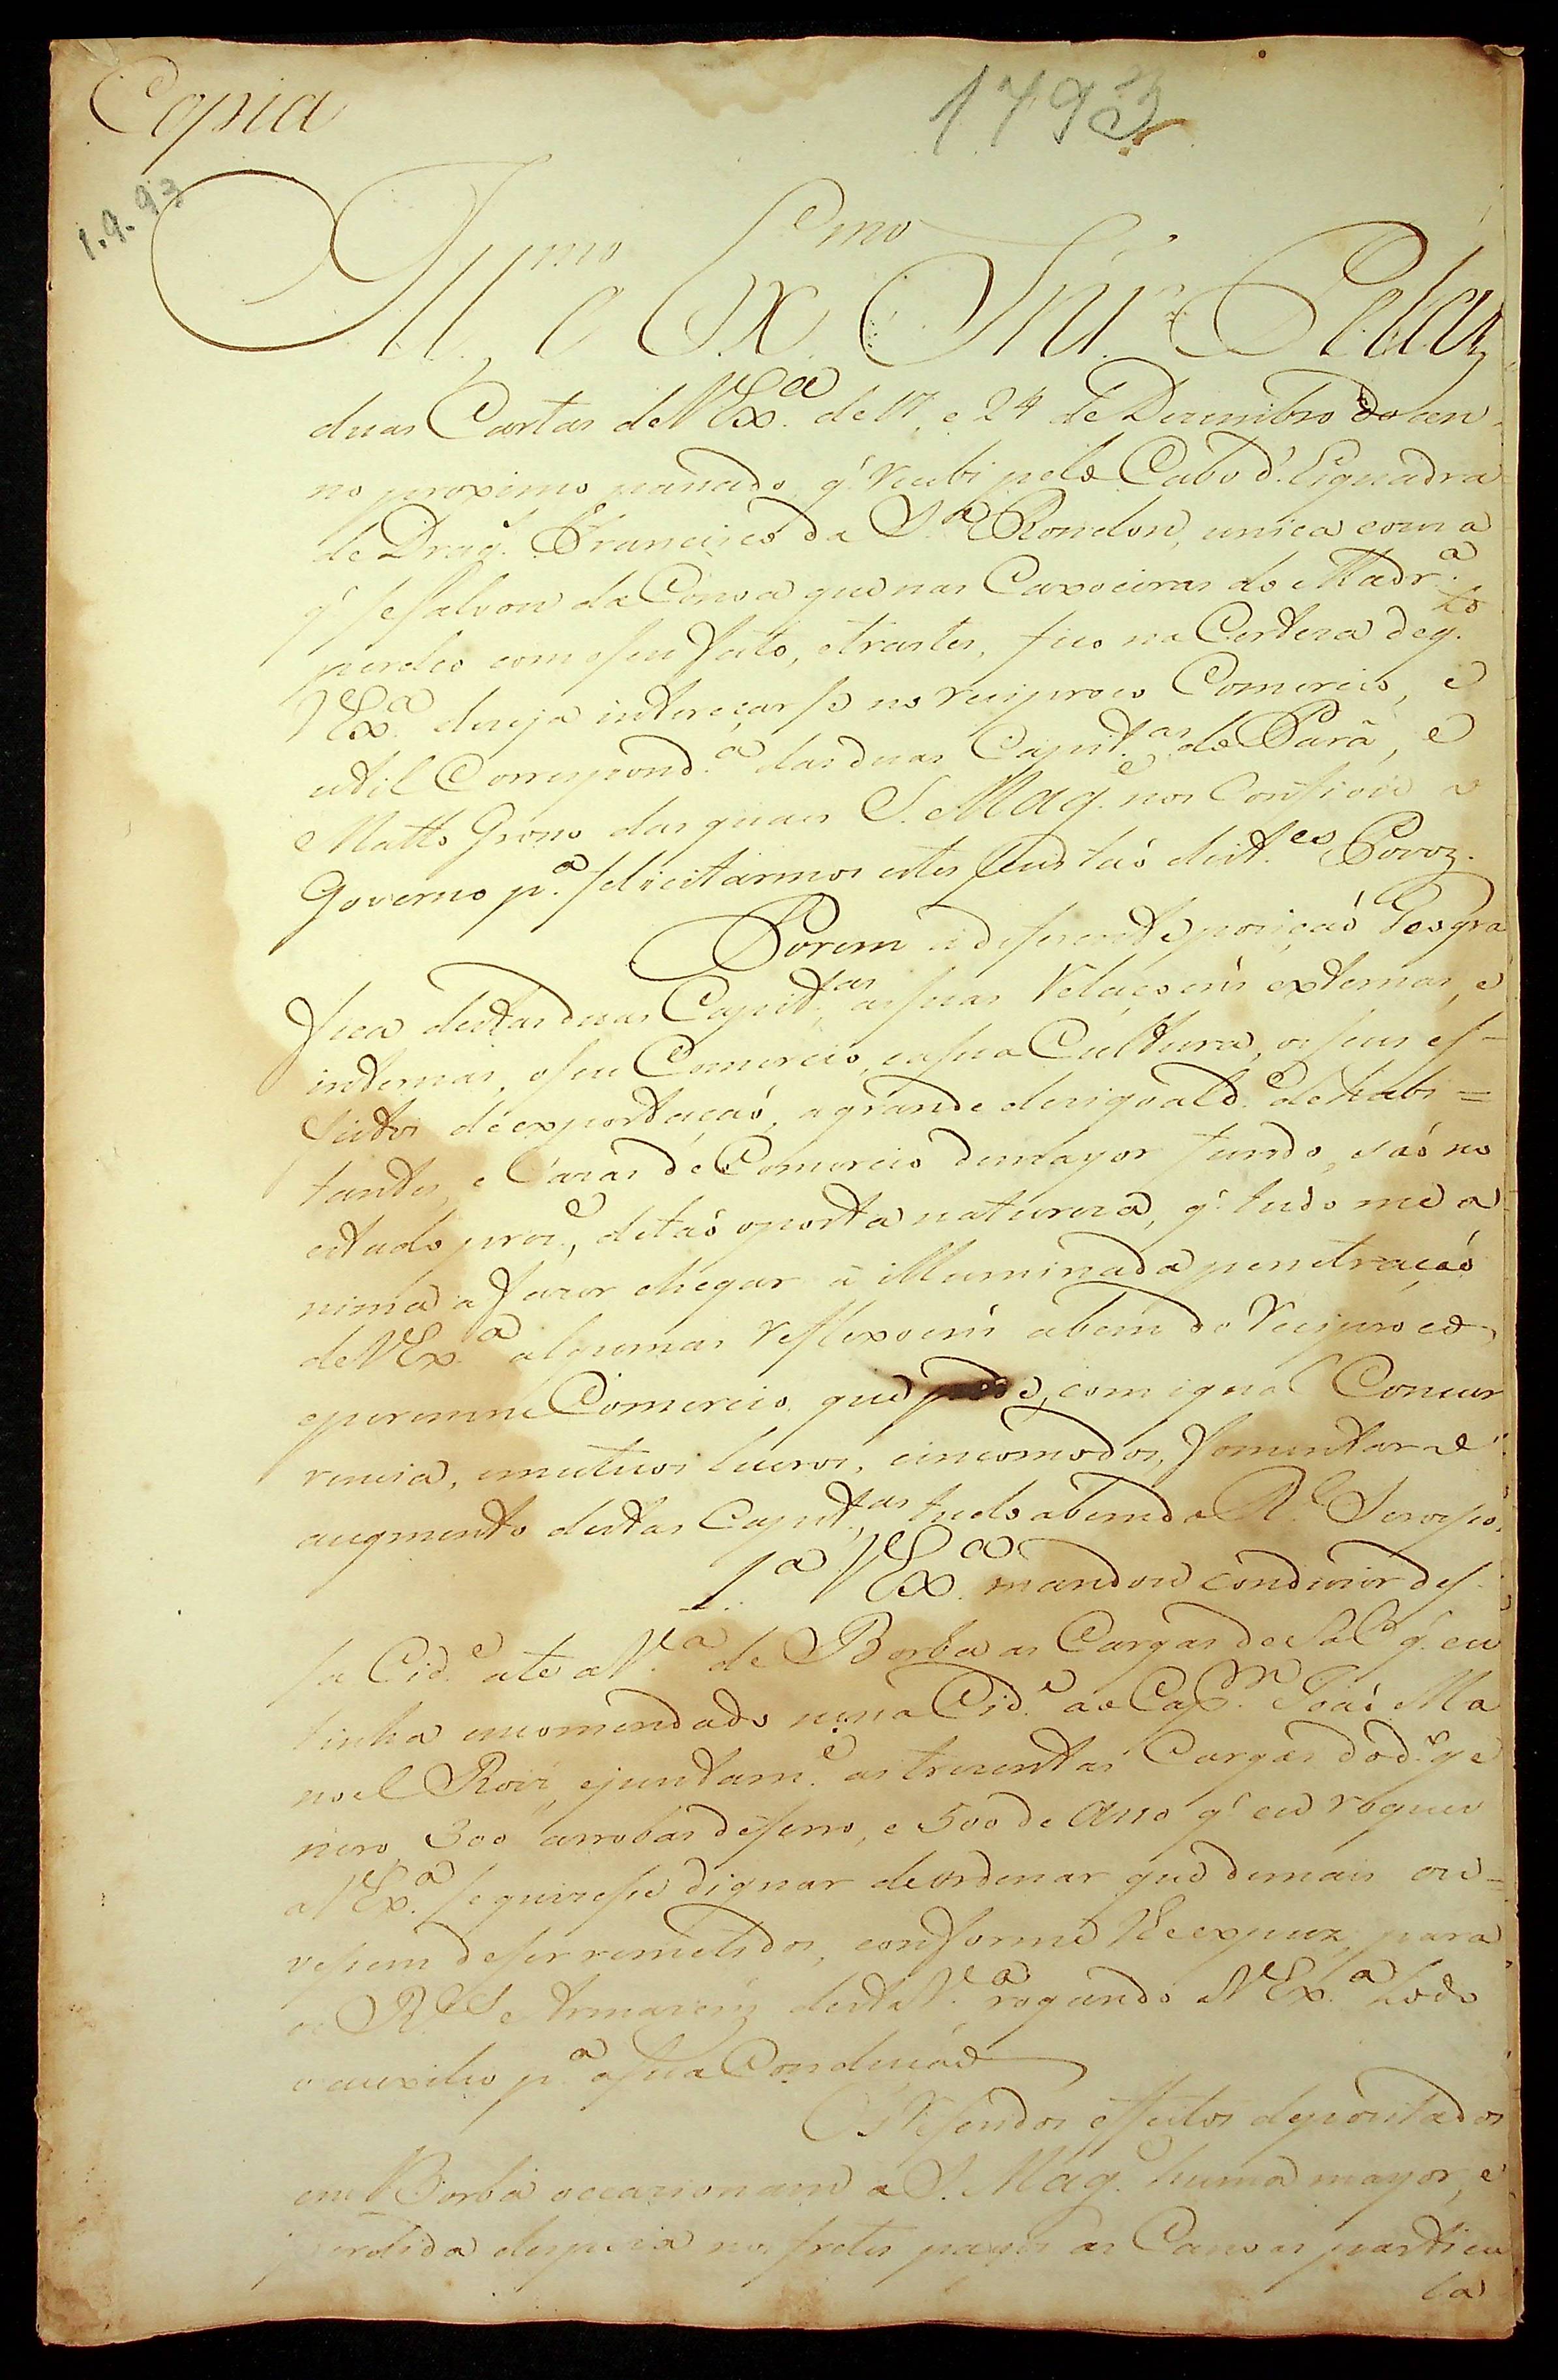 Copia
1793
1.9.93
Ill.mo e Ex.mo Snr. Pelas
duas Cartas de VEx.a de 17, e 24 de Dezembro do an-
no proximo passado q' recebi pelo Cabo d'Esquadra
de Drag.s Francisco da S.a Rondon, unica couza
q' se salvou da Canoa que nas Caxoeiras do Madr.a
perdeo com o seu fato, e trastes, fico na Certeza de q.to
VEx.a deseja intereçarse no reciproco Comercio, e
util Correspond.a das duas Capit.as do Pará, e
Matto Grosso das quaes S. Mag.e nos Confiou o
Governo p.a felicitarmos estes seus tão dist.es Povoz.
Porem a diferente pozição Geogra
fica destas duas Capit.as as suas Relaçoens externas, e
internas, o seu Comercio, e a sua Cultura, os seus ef-
feitos de exportação, a grande desiguald.e de habi=
tantes, e Cazas de Comercio de mayor fundo, são no
estado prez.e, de tão oposta natureza, q' tudo me a
nima a fazer chegar á illuminada penetração
de VEx.a algumas reflexoens a bem do reciproco,
e perenne Comercio que pode, com igual Concur
rencia, e mutuos lucros, e incomodos, fomentar o
augmento destas Capit.as tudo a bem do R.l Serviço.
1.a VEx.a mandou conduzir des-
sa Cid.e ate a V.a de Borba as Cargas de Sal q' eu
tinha encomendado nessa Cid.e ao Cap.m João Ma
noel Roiz, e juntam.e as trezentas Cargas do d.o ge
nero, 300 arrobas de ferro, e 500 de Asso q' eu roguei
a VEx.a se quizesse dignar de ordenar que de mais ou-
vessem de ser remetidos, conforme lhe expuz, para
os R.s Armazens desta V.a rogando a VEx.a todo
o auxilio p.a a sua Condução
Os referidos effeitos depozitados
em Borba occazionam a S. Mag.e huma mayor, e
perdida despeza nos fretes pagos as Canoas particu
la